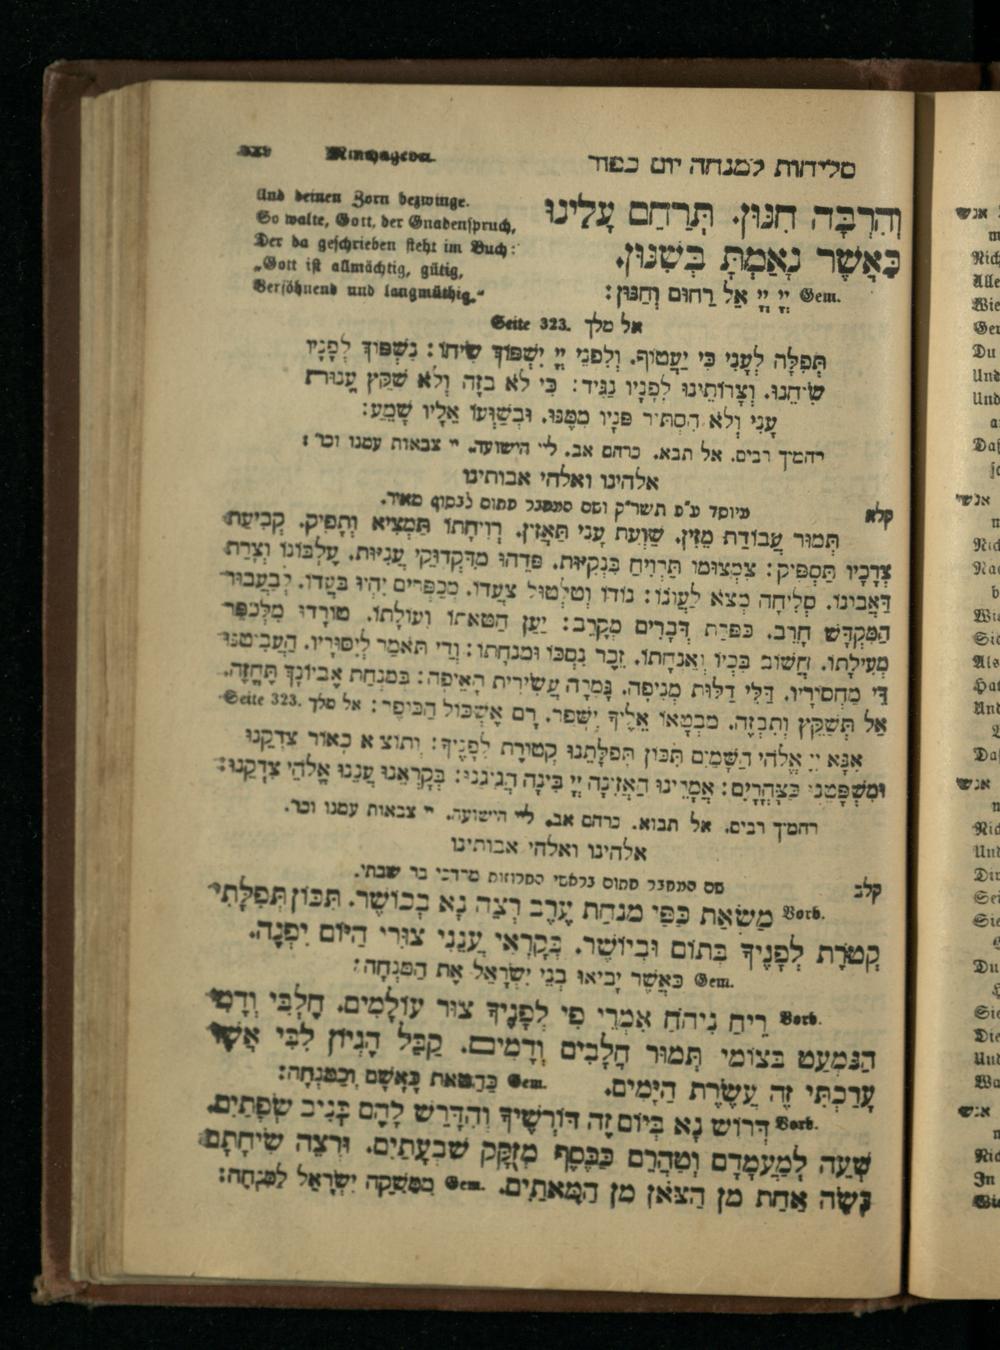 סליחות למנחה יום כפור
Minchagebet.
וְהִרְבָּה חִנּוּן. תְּרַחֵם עָלֵינוּ
כַּאֲשֶׁר נָאַמְתָּ בְּשִׁנּוּן.
Gem. יְיָ יְיָ אֵל רַחוּם וְחַנּוּן:
Und deinen Zorn bezwinge.
So walte, Gott, der Gnadenspruch,
Der da geschrieben steht im Buch:
„Gott ist allmächtig, gütig,
Versöhnend und langmüthig."
אל מלך Seite 323.
תְּפִלָּה לְעָנִי כִי יַעֲטוֹף. וְלִפְנֵי יְיָ יִשְׁפּוֹךְ שִׂיחוֹ: נִשְׁפּוֹךְ לְפָנָיו
שִׂיחֵנוּ. וְצָרוֹתֵינוּ לְפָנָיו נַגִּיד: כִּי לֹא בָזָה וְלֹא שִׁקַּץ עֱנוּת
עָנִי וְלֹא הִסְתִּיר פָּנָיו מִמֶּנּוּ. וּבְשַׁוְּעוֹ אֵלָיו שָׁמֵעַ:
רחמיך רבים. אל תבא. כרחם אב. ליי הישועה. יי צבאות עמנו וכו':
אלהינו ואלהי אבותינו
קלא מיוסד ע"פ תשר"ק ושם המחבר חתום לבסוף מאיר.
תְּמוּר עֲבוֹדַת מֵזִין. שַׁוְעַת עָנִי תַּאֲזִין. רְוִיחָתוֹ תַּמְצִיא וְתָפִיק. קְבִיעַת
צְדָכָיו תַּסְפִּיק: צִמְצוּמוֹ תַּרְוִיחַ בִּנְקִיּוּת. פְּדֵהוּ מִדִּקְדּוּקֵי עֲנִיּוּת. עֶלְבּוֹנוֹ וְצָרַת
דַּאֲבוֹנוֹ. סְלִיחָה מְצֹא לַעֲוֹנוֹ: נוֹדוֹ וְטִלְטוּל צַעֲדוֹ. מְכַפְּרִים יִהְיוּ בַּעֲדוֹ. לְבַעֲבוּר
הַמִּקְדָּשׁ חָרֵב. כַּפָּרַת דְּבָרִים מְקָרֵב: יַעַן חַטָּאתוֹ וְעוֹלָתוֹ. טוֹרְדוֹ מִלְּכַפֵּר
מְעִילָתוֹ. חֲשׁוֹב בִּכְיוֹ וְאַנְחָתוֹ. זֵכֶר נִסְכּוֹ וּמִנְחָתוֹ: וְדַי תֹּאמַר לְיִסּוּרָיו.
דֵּי מַחְסוֹרָיו. דַּלֵּי דַלּוּת מְנִיפָה. גְּמָרָהּ עֲשִׂירִית הָאֵיפָה: בְּמִנְחַת אֶבְיוֹנְךָ תֶּחֱזֶה.
אַל תְּשַׁקֵּץ וְתִבְזֶה. מִבְטָאוֹ אֵלֶיךָ יְשֻׁפַּר. רָם אֶשְׁכּוֹל הַכֹּפֶר: אל מלך Seite 323.
אָנָּא יְיָ אֱלֹהֵי הַשָּׁמַיִם תִּכּוֹן תְּפִלָּתֵנוּ קְטוֹרֶת לְפָנֶיךָ: וְתוֹצִיא כָאוֹר צִדְקֵנוּ
וּמִשְׁפָּטֵנוּ כַּצָּהֳרָיִם: אֲמָרֵינוּ הַאֲזִינָה יְיָ בִּינָה הֲגִיגֵנוּ: בְּקָרְאֵנוּ עֲנֵנוּ אֱלֹהֵי צִדְקֵנוּ:
רחמיך רבים. אל תבוא. כרחם אב. ליי הישועה. יי צבאות עמנו וכו'.
אלהינו ואלהי אבותינו
קלב שם המחבר חתום בראשי החרוזות מרדכי בר שבתי.
Vorb. מַשְׂאַת כַּפַּי מִנְחַת עֶרֶב רְצֵה נָא בְכוֹשֶׁר. תִּכּוֹן תְּפִלָּתִי
קְטֹרֶת לְפָנֶיךָ בְּתוֹם וּבְיוֹשֶׁר. בְּקָרְאִי עֲנֵנִי צוּרִי הַיּוֹם יִפְנֶה.
Gem. כַּאֲשֶׁר יָבִיאוּ בְנֵי יִשְׂרָאֵל אֶת הַמִּנְחָה:
Vorb. רֵיחַ נִיחֹחַ אִמְרֵי פִי לְפָנֶיךָ צוּר עוֹלָמִים. חֶלְבִּי וְדָמִי
הַנִּמְעָט בְּצוֹמִי תְּמוּר חֲלָבִים וְדָמִים. קַבֵּל הֶגְיוֹן לִבִּי אֲשֶׁר
עָרַכְתִּי זֶה עֲשֶׂרֶת הַיָּמִים. Gem. כַּחַטָּאת כָּאָשָׁם וְכַמִּנְחָה:
Vorb. דְּרוֹשׁ נָא בְּיוֹם זֶה דּוֹרְשֶׁיךָ וְהִדָּרֵשׁ לָהֶם בְּנִיב שְׂפָתַיִם.
שְׁעֵה לְמַעֲמָדָם וְטַהֲרֵם כַּכֶּסֶף מְזֻקָּק שִׁבְעָתַיִם. וּרְצֵה שִׂיחָתָם
כְּשֶׂה אַחַת מִן הַצֹּאן מִן הַמָּאתַיִם. Gem. מִמַּשְׁקֵה יִשְׂרָאֵל לַמִּנְחָה: